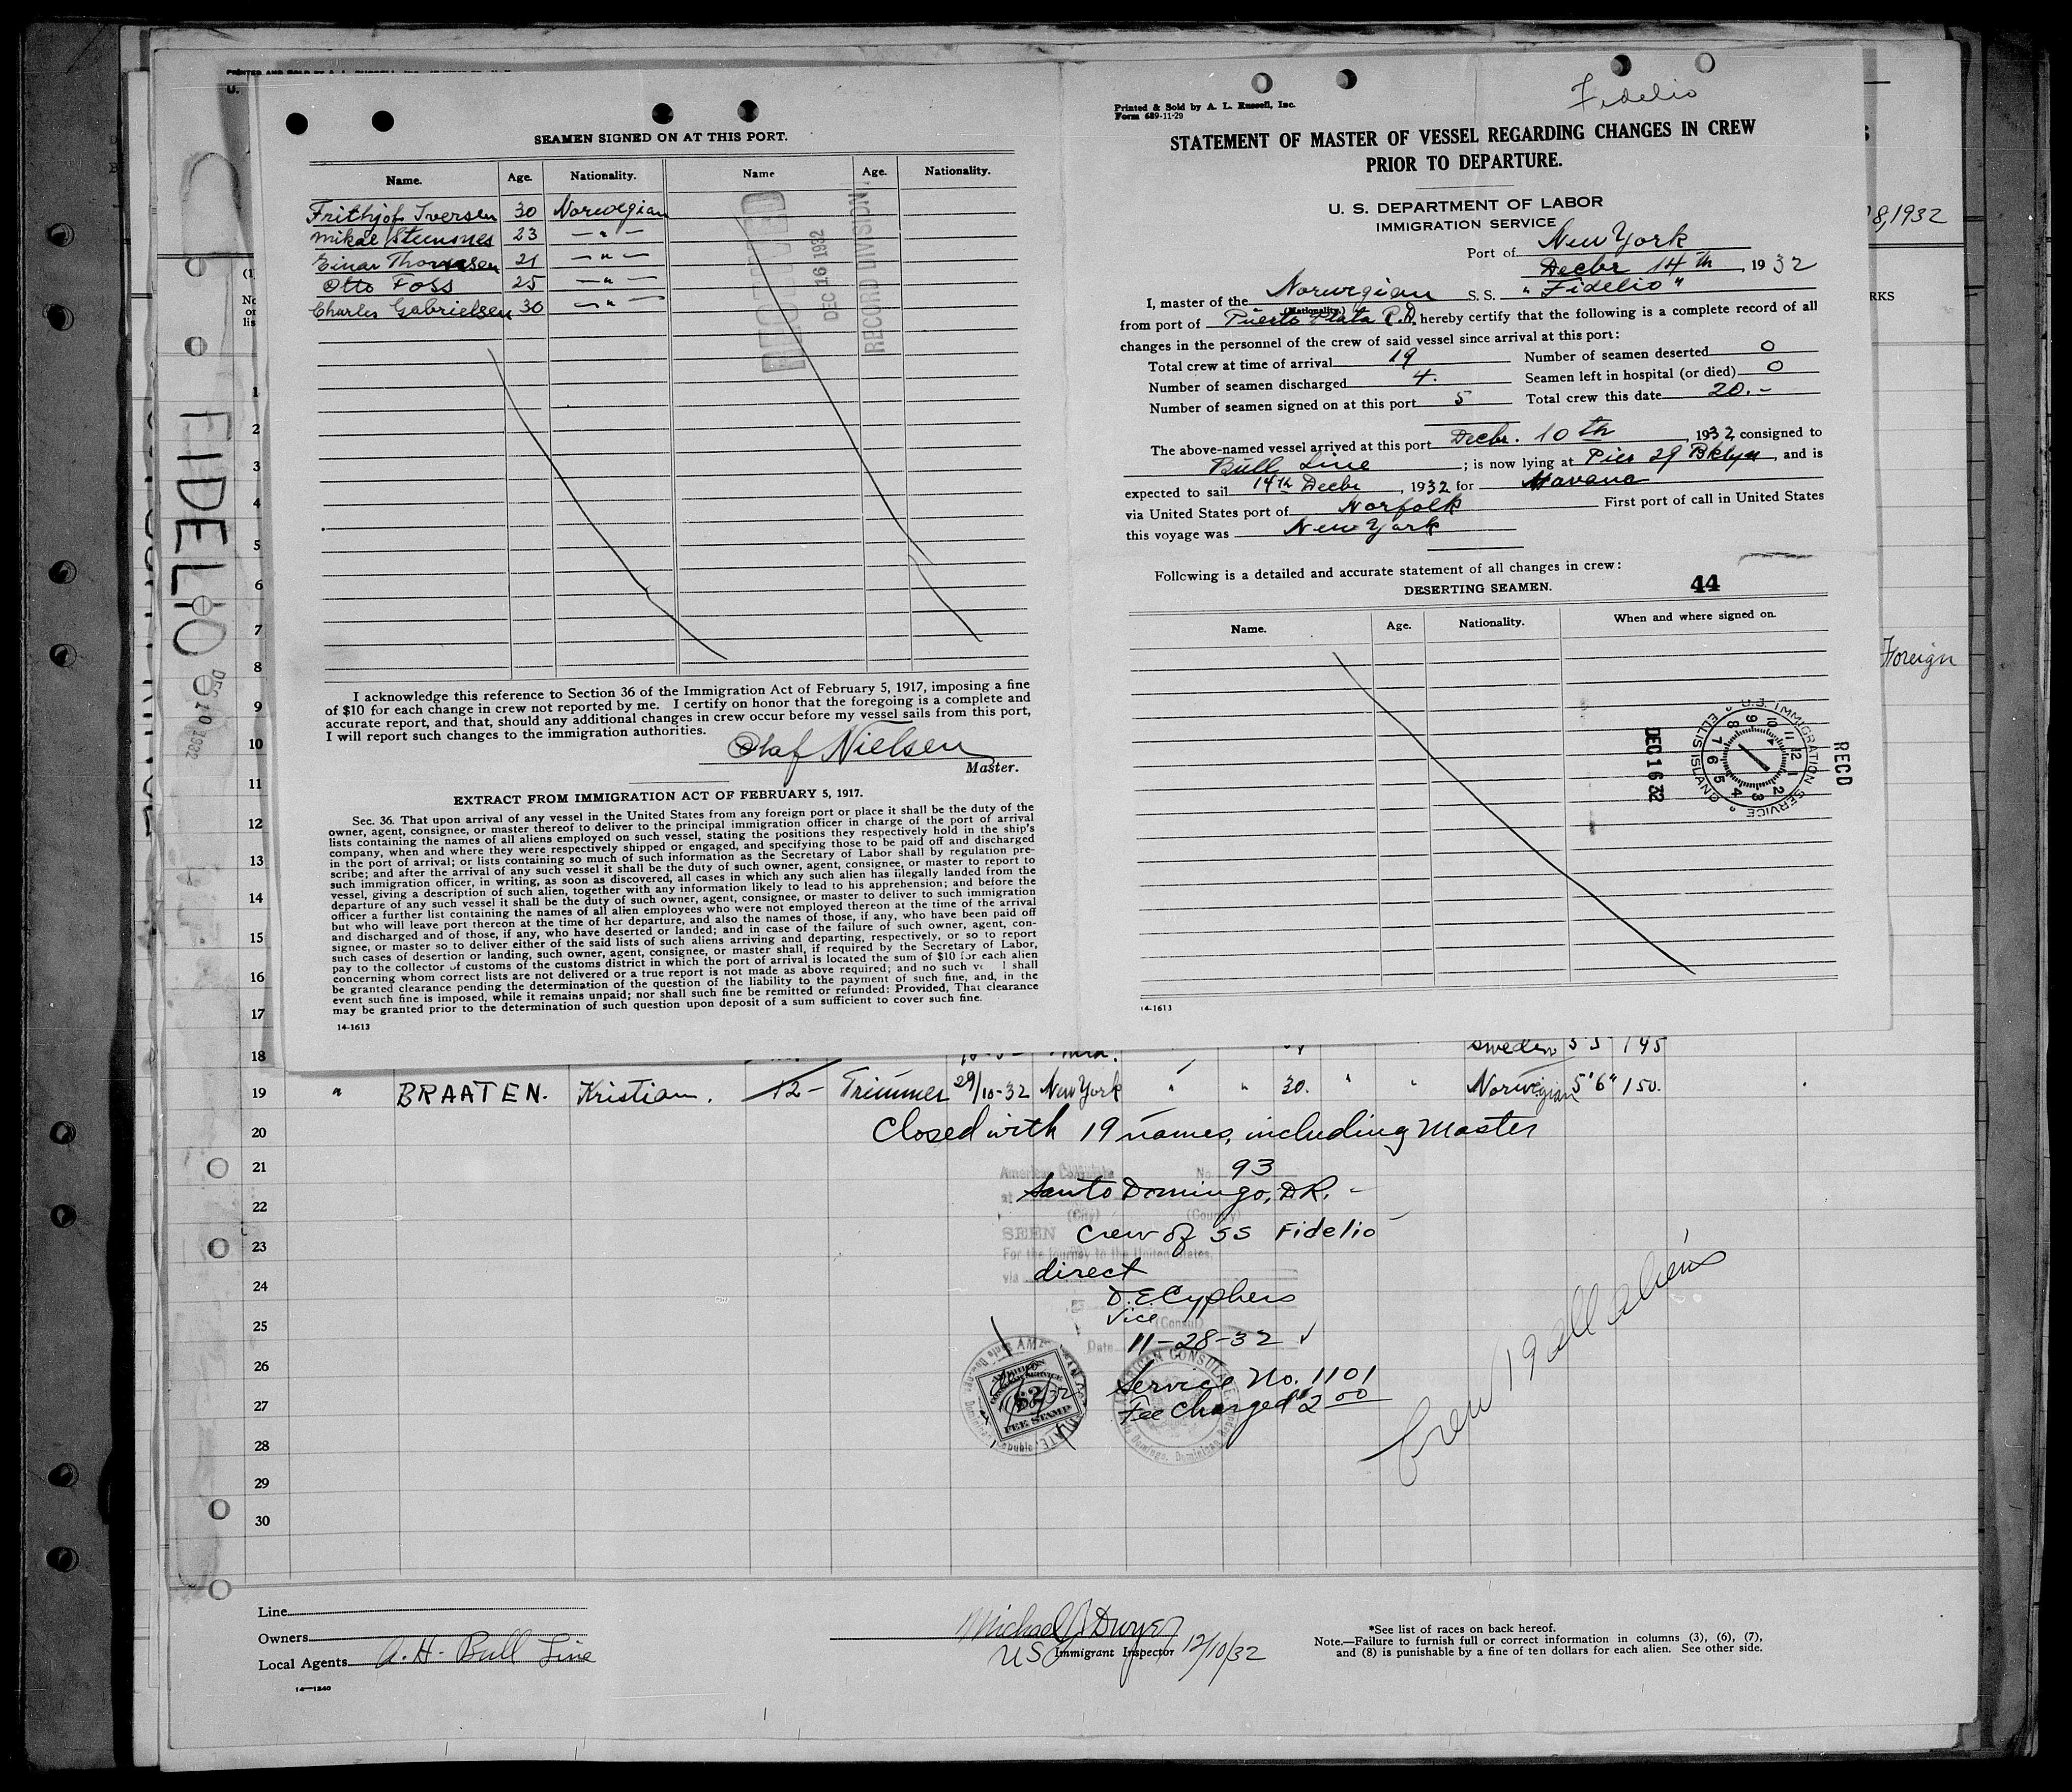 SEAMEN SIGNED ON AT THIS PORT.
Name. Age. Nationality. Name Age. Nationality.
Frithjof Iversen 30 Norwegian
Mikal Steensnes 23 — " —
Einar Thomassen 21 — " —
Otto Foss 25 — " —
Charles Gabrielsen 30 — " —
RECEIVED
DEC 16 1932
RECORD DIVISION
I acknowledge this reference to Section 36 of the Immigration Act of February 5, 1917, imposing a fine
of $10 for each change in crew not reported by me. I certify on honor that the foregoing is a complete and
accurate report, and that, should any additional changes in crew occur before my vessel sails from this port,
I will report such changes to the immigration authorities.
Olaf Nielsen
Master.
EXTRACT FROM IMMIGRATION ACT OF FEBRUARY 5, 1917.
Sec. 36. That upon arrival of any vessel in the United States from any foreign port or place it shall be the duty of the
owner, agent, consignee, or master thereof to deliver to the principal immigration officer in charge of the port of arrival
lists containing the names of all aliens employed on such vessel, stating the positions they respectively hold in the ship's
company, when and where they were respectively shipped or engaged, and specifying those to be paid off and discharged
in the port of arrival; or lists containing so much of such information as the Secretary of Labor shall by regulation pre-
scribe; and after the arrival of any such vessel it shall be the duty of such owner, agent, consignee, or master to report to
such immigration officer, in writing, as soon as discovered, all cases in which any such alien has illegally landed from the
vessel, giving a description of such alien, together with any information likely to lead to his apprehension; and before the
departure of any such vessel it shall be the duty of such owner, agent, consignee, or master to deliver to such immigration
officer a further list containing the names of all alien employees who were not employed thereon at the time of the arrival
but who will leave port thereon at the time of her departure, and also the names of those, if any, who have been paid off
and discharged and of those, if any, who have deserted or landed; and in case of the failure of such owner, agent, con-
signee, or master so to deliver either of the said lists of such aliens arriving and departing, respectively, or so to report
such cases of desertion or landing, such owner, agent, consignee, or master shall, if required by the Secretary of Labor,
pay to the collector of customs of the customs district in which the port of arrival is located the sum of $10 for each alien
concerning whom correct lists are not delivered or a true report is not made as above required; and no such ve l shall
be granted clearance pending the determination of the question of the liability to the payment of such fine, and, in the
event such fine is imposed, while it remains unpaid; nor shall such fine be remitted or refunded: Provided, That clearance
may be granted prior to the determination of such question upon deposit of a sum sufficient to cover such fine.
14-1613
Fidelio
Printed & Sold by A. L. Russell, Inc.
Form 689-11-29
STATEMENT OF MASTER OF VESSEL REGARDING CHANGES IN CREW
PRIOR TO DEPARTURE.
U. S. DEPARTMENT OF LABOR
IMMIGRATION SERVICE
Port of New York
Decbr 14th, 1932
I, master of the Norwegian S. S. "Fidelio"
(Nationality.)
from port of Puerto Plata R.D. hereby certify that the following is a complete record of all
changes in the personnel of the crew of said vessel since arrival at this port:
Total crew at time of arrival 19 Number of seamen deserted 0
Number of seamen discharged 4. Seamen left in hospital (or died) 0
Number of seamen signed on at this port 5 Total crew this date 20.-
The above-named vessel arrived at this port Decbr. 10th, 1932 consigned to
Bull Line; is now lying at Pier 29 Bklyn, and is
expected to sail 14th Decbr, 1932 for Havana
via United States port of Norfolk First port of call in United States
this voyage was New York
Following is a detailed and accurate statement of all changes in crew:
44
DESERTING SEAMEN.
Name. Age. Nationality. When and where signed on.
RECD
U.S. IMMIGRATION SERVICE
ELLIS ISLAND
DEC 16 32
14-1613
8, 1932
RKS
Foreign
FIDELIO
DEC 10 1932
1
2
3
4
5
6
7
8
9
10
11
12
13
14
15
16
17
18 sweden 5 5 145
19 " BRAATEN. Kristian. 12- Trimmer 29/10-32 New York " " 30. " " Norwegian 5'6" 150.
20 Closed with 19 names, including Master
21
22
23
24
25
26
27
28
29
30
American Consulate No. 93
at Santo Domingo, D.R.
(City) (Country)
SEEN Crew of SS Fidelio
For the journey to the United States,
via direct
D. E. Cyphers
Vice (Consul)
Date 11-28-32
Service No. 1101
Fee Charged $2 00
AMERICAN CONSULATE
Santo Domingo, Dominican Republic
$2
FEE STAMP
Crew 19 all aliens
Line
Owners
Local Agents A. H. Bull Line
14—1240
Michael J. Dwyer
US Immigrant Inspector 12/10/32
*See list of races on back hereof.
Note.—Failure to furnish full or correct information in columns (3), (6), (7),
and (8) is punishable by a fine of ten dollars for each alien. See other side.